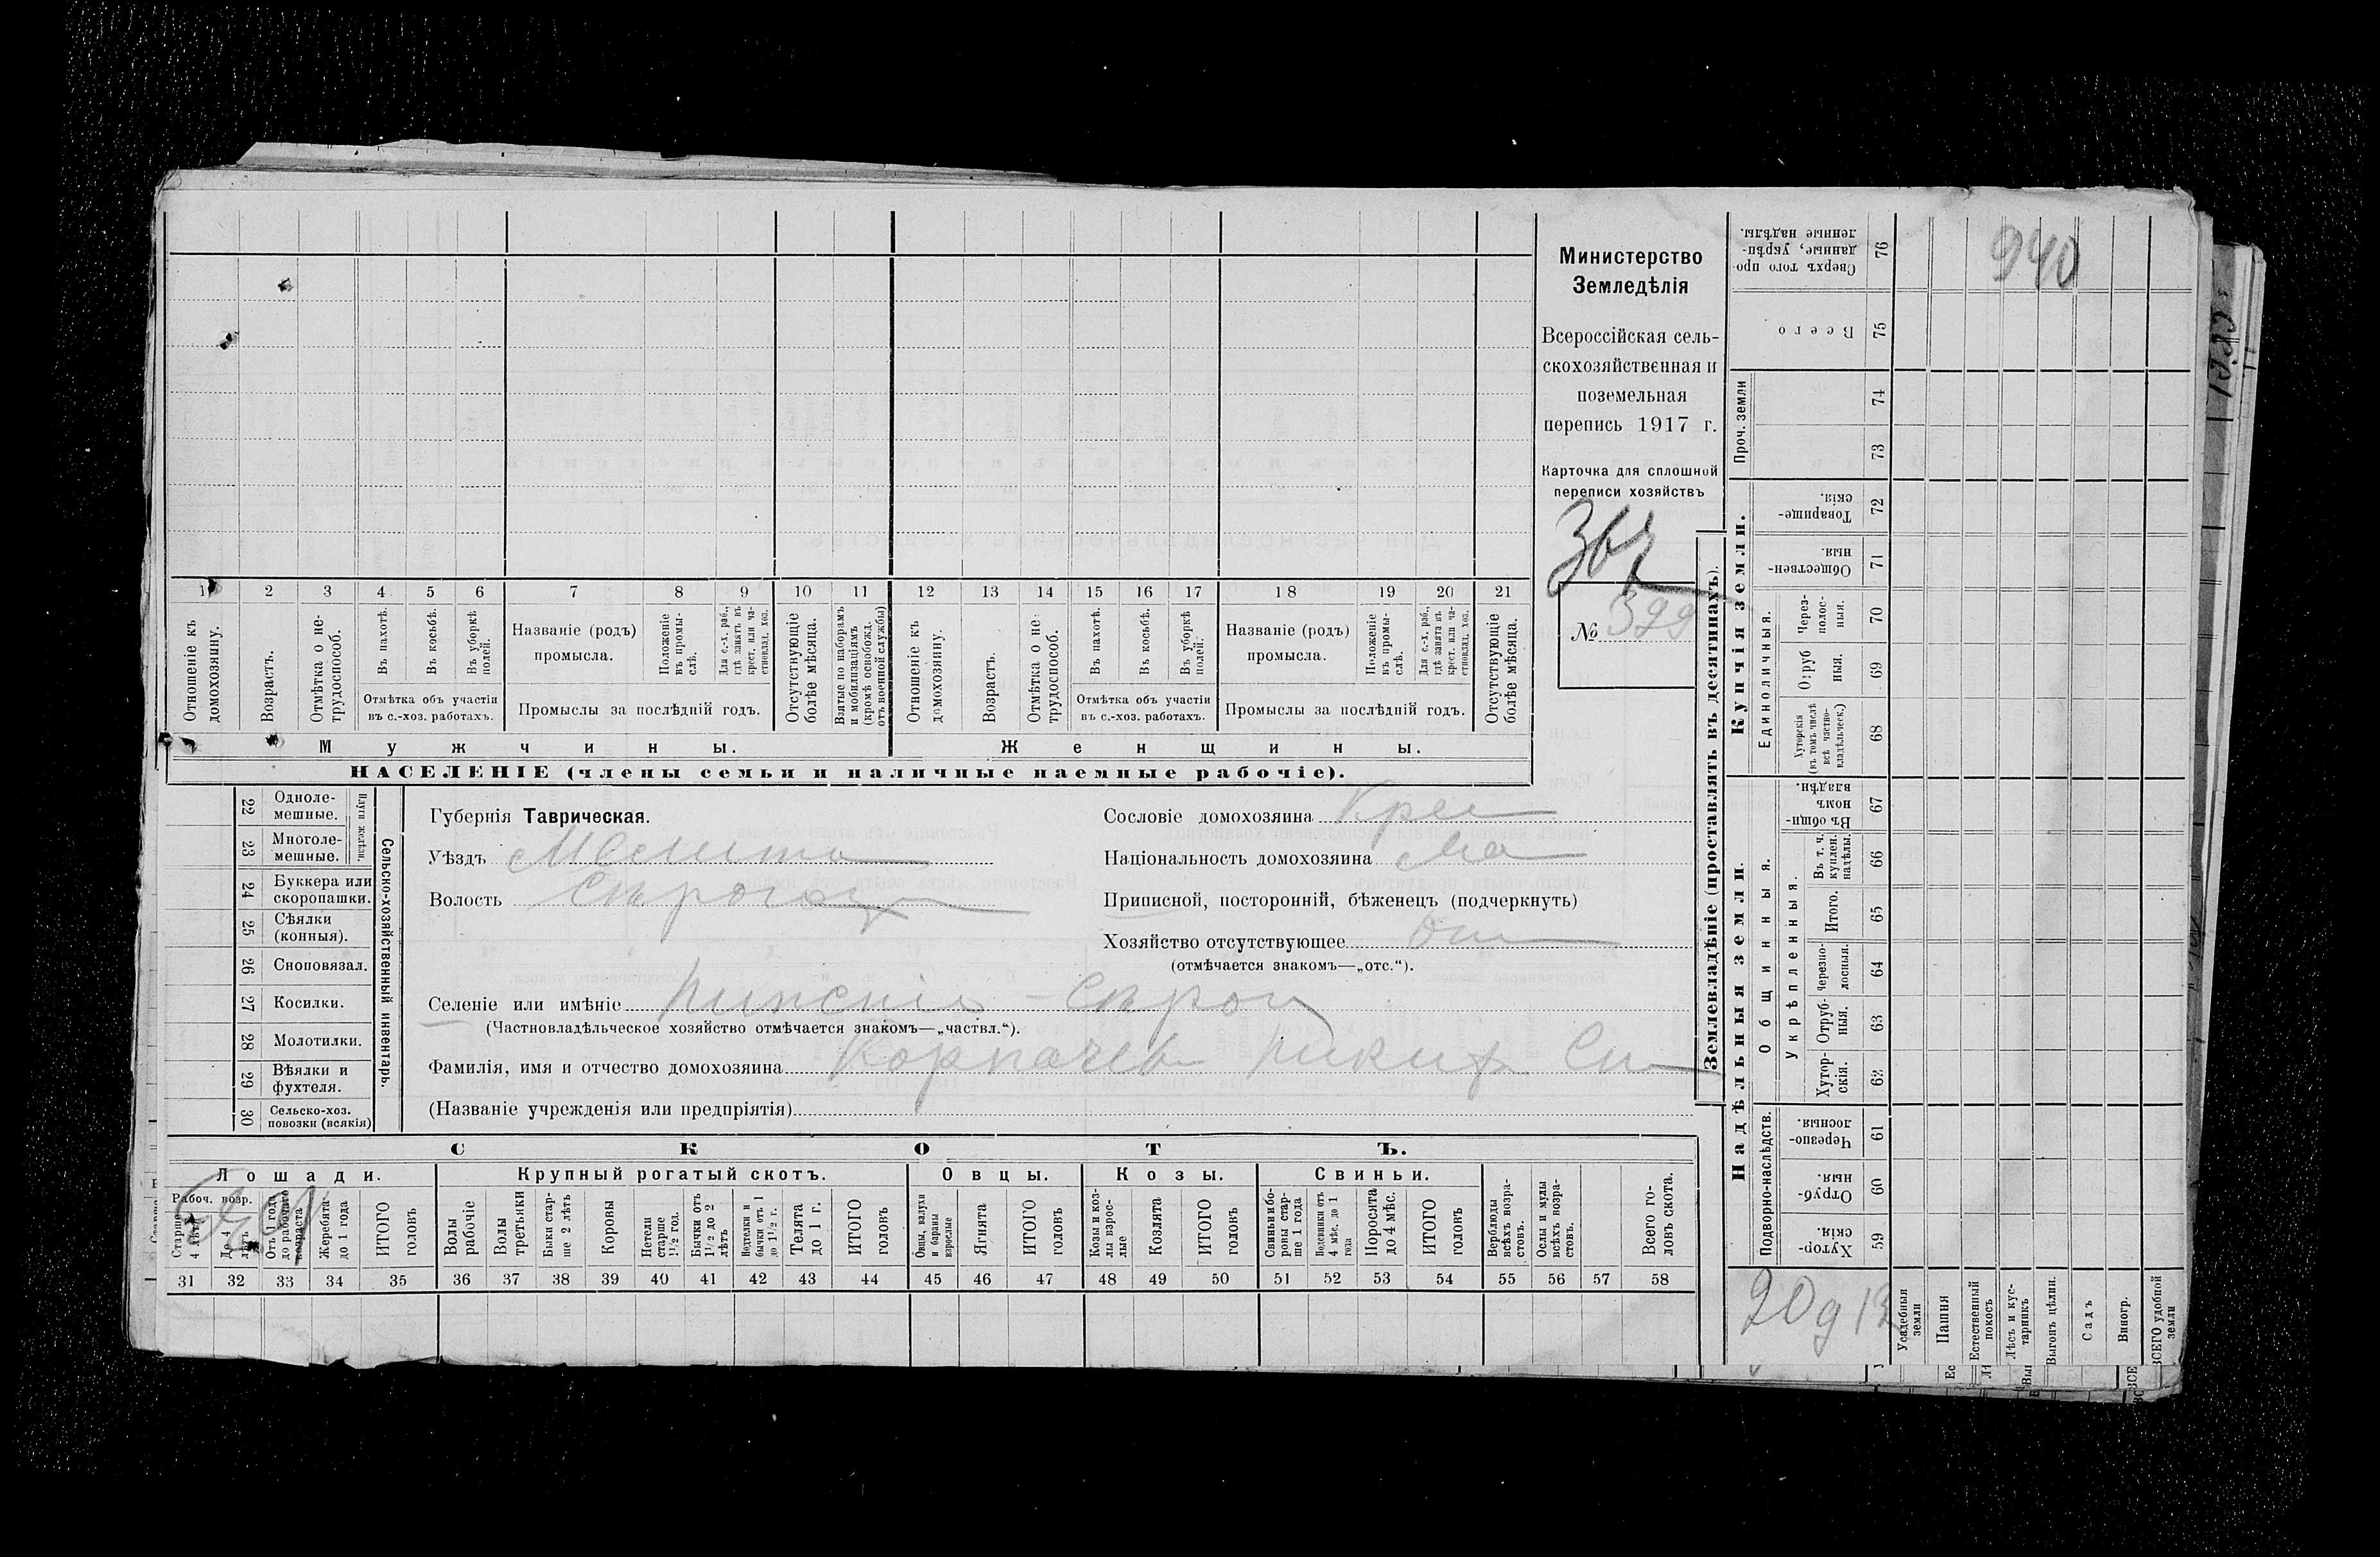 Министерство
Земледѣлія
Всероссійская сель-
скохозяйственная и
поземельная
перепись 1917 г.
Карточка для сплошной
переписи хозяйствъ
№ 399
1 2 3 4 5 6 7 8 9 10 11 12 13 14 15 16 17 18 19 20 21
Отношеніе къ домохозяину.
Возрастъ.
Отмѣтка о не-
трудоспособ.
Въ пахотѣ.
Въ косьбѣ.
Въ уборкѣ полей.
Отмѣтка объ участіи
въ с.-хоз. работахъ.
Названіе (родъ)
промысла.
Положеніе
въ промы-
слѣ.
Для с.-х. раб.,
гдѣ занятъ въ
крест. или ча-
стновлад. хоз.
Промыслы за послѣдній годъ.
Отсутствующіе
болѣе мѣсяца.
Взятые по наборамъ
и мобилизаціямъ
(кромѣ освобожд.
отъ военной службы)
Отношеніе къ
домохозяину.
Возрастъ.
Отмѣтка о не-
трудоспособ.
Въ пахотѣ.
Въ косьбѣ.
Въ уборкѣ
полей.
Отмѣтка объ участіи
въ с.-хоз. работахъ.
Названіе (родъ)
промысла.
Положеніе
въ промы-
слѣ.
Для с.-х. раб.,
гдѣ занята въ
крест. или ча-
стновлад. хоз.
Промыслы за послѣдній годъ.
Отсутствующіе
болѣе мѣсяца.
Мужчины.
Женщины.
НАСЕЛЕНІЕ (члены семьи и наличные наемные рабочіе).
22 Одноле-
мешные.
23 Многоле-
мешные.
Плуги желѣзн.
24 Буккера или
скоропашки.
25 Сѣялки
(конныя).
26 Сноповязал.
27 Косилки.
28 Молотилки.
29 Вѣялки и
фухтеля.
30 Сельско-хоз.
повозки (всякія)
Сельско-хозяйственный инвентарь.
Губернія Таврическая.
Уѣздъ Мелито
Волость Сѣрогоз
Сословіе домохозяина Крес
Національность домохозяина Мал
Приписной, посторонній, бѣженецъ (подчеркнуть)
Хозяйство отсутствующее
(отмѣчается знакомъ—„отс.“).
Селеніе или имѣніе Нижнія - Сѣрог
(Частновладѣльческое хозяйство отмѣчается знакомъ—„частвл.“).
Фамилія, имя и отчество домохозяина Корпачев Никиф
(Названіе учрежденія или предпріятія)
СКОТЪ.
Лошади.
Крупный рогатый скотъ.
Овцы.
Козы.
Свиньи.
Рабоч. возр.
Старше
4 лѣтъ
До 4
лѣтъ
Отъ 1 года
до рабочаго
возраста
Жеребята
до 1 года
ИТОГО
головъ
Волы
рабочіе
Волы
третьяки
Быки стар-
ше 2 лѣтъ
Коровы
Нетели
старше
1½ год.
Бычки отъ
1½ до 2
лѣтъ
Подтелки и
бычки отъ 1
до 1½ г.
Телята
до 1 г.
ИТОГО
головъ
Овцы, валухи
и бараны
взрослые
Ягнята
ИТОГО
головъ
Козы и коз-
лы взрос-
лые
Козлята
ИТОГО
головъ
Свиньи и бо-
ровы стар-
ше 1 года
Подсвинки отъ
4 мѣс. до 1
года
Поросята
до 4 мѣс.
ИТОГО
головъ
Верблюды
всѣхъ возра-
стовъ.
Ослы и мулы
всѣхъ возра-
стовъ.
Всего го-
ловъ скота.
31 32 33 34 35 36 37 38 39 40 41 42 43 44 45 46 47 48 49 50 51 52 53 54 55 56 57 58
Землевладѣніе (проставлять въ десятинахъ).
Надѣльныя земли.
Купчія земли.
Проч. земли
Подворно-наслѣдств.
Общинныя.
Укрѣпленныя.
Единоличныя.
Хутор-
скія. 59
Отруб-
ныя. 60
Черезпо-
лосныя. 61
Хутор-
скія. 62
Отруб-
ныя. 63
Черезпо-
лосныя. 64
Итого. 65
Въ т. ч.
куплен.
надѣлы. 66
Въ общи-
номъ
владѣн. 67
Хуторскія
(въ томъ числѣ
всѣ частно-
владѣльческ.) 68
Отруб
ныя. 69
Через-
полос-
ныя. 70
Обществен-
ныя. 71
Товарище-
скія. 72
73
74
Всего 75
Сверхъ того про-
данные, укрѣп-
ленные надѣлы. 76
940
20 д 13
Усадебныя
земли
Пашня
Естественный
покосъ
Лѣсъ и кус-
тарникъ
Выгонъ цѣлин.
Садъ
Виногр.
ВСЕГО удобной
земли